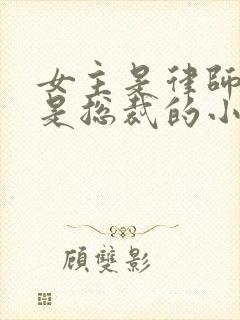 女主是律師
是总裁的小
顧雙影